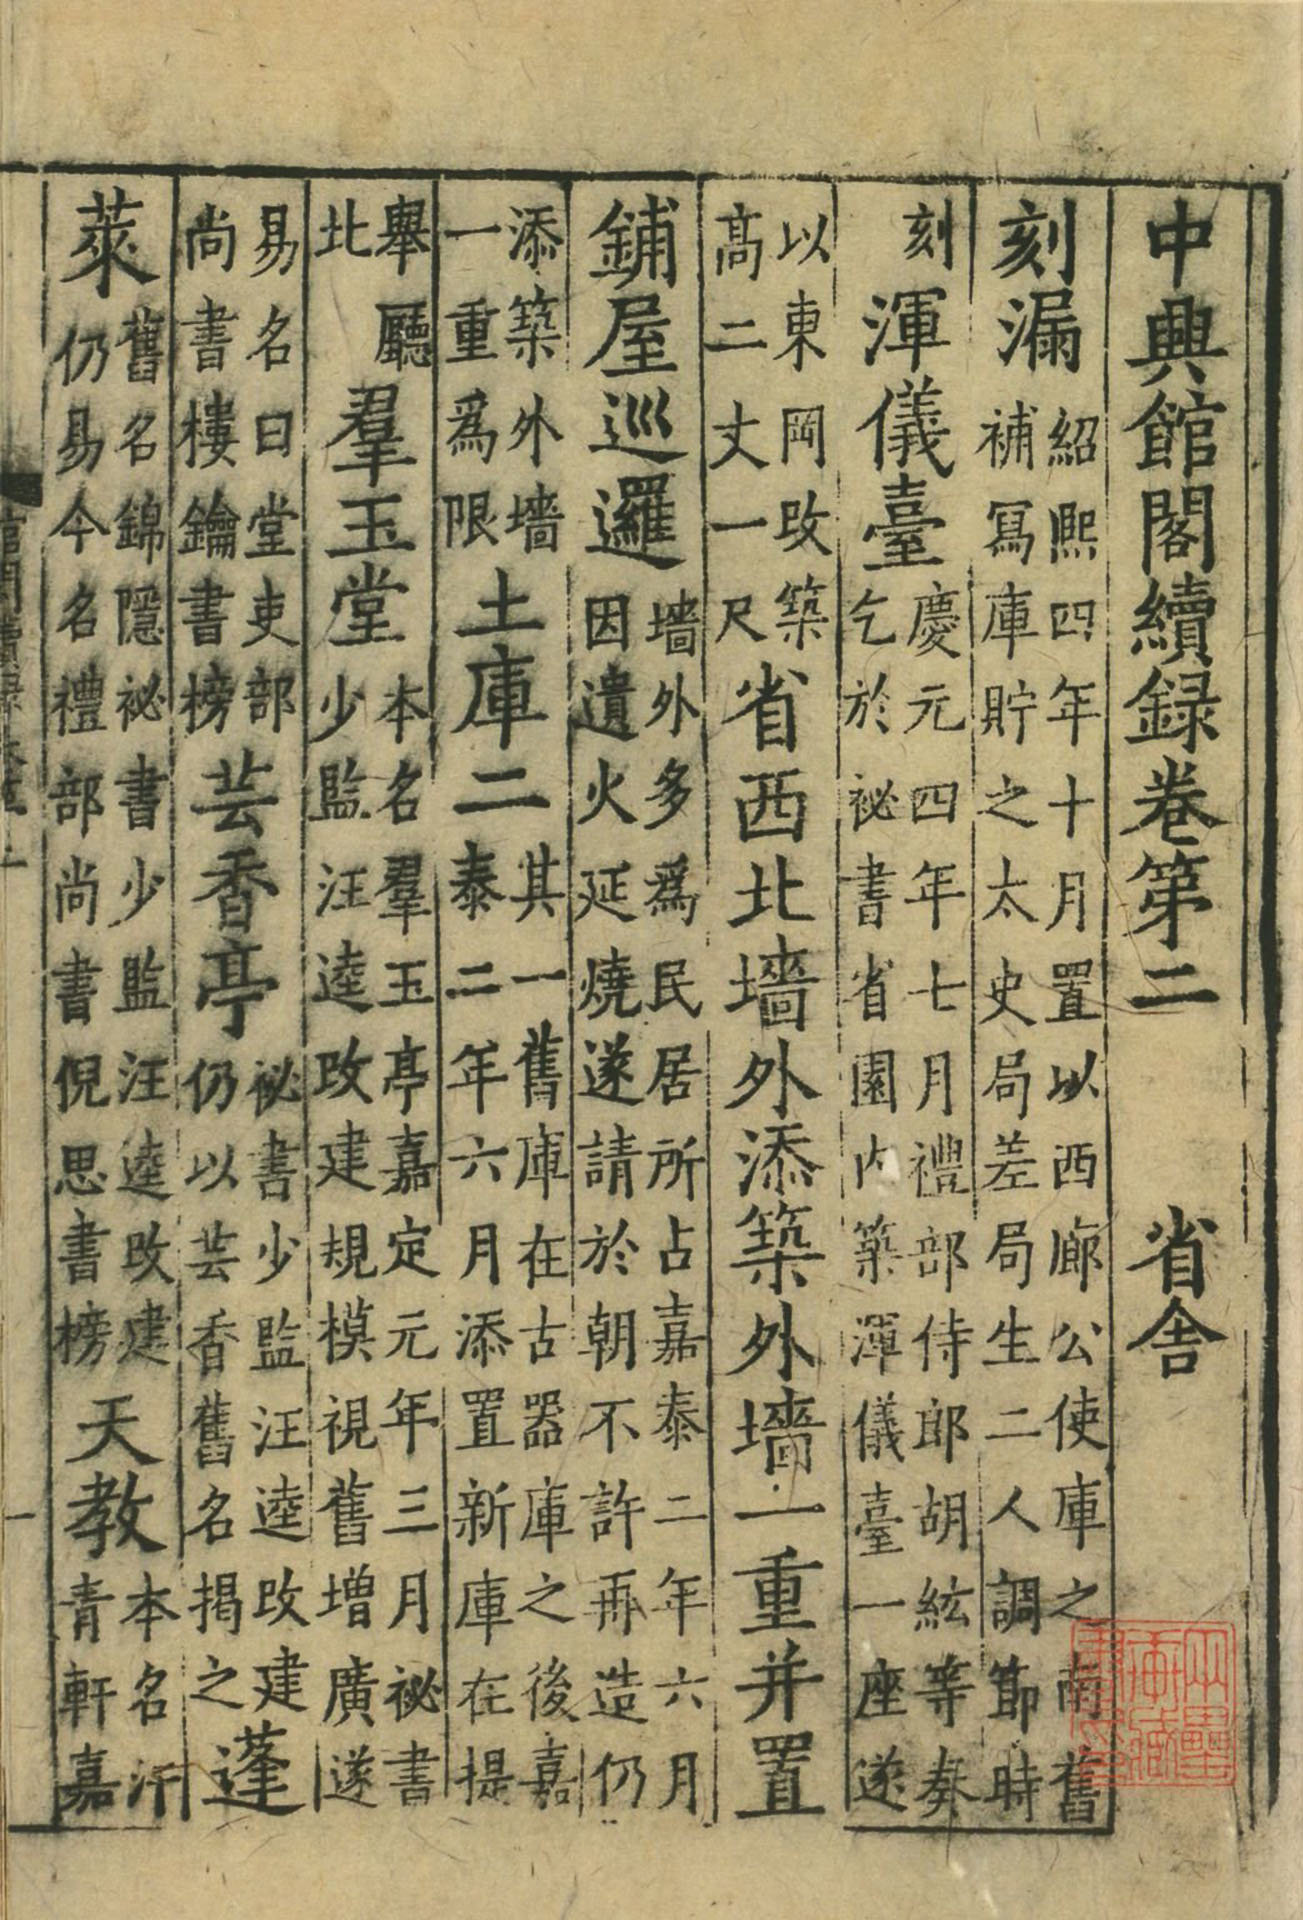 中興館閣續録卷第二 省舍
刻漏 紹熙四年十月置以西廊公使庫之南舊
補寫庫貯之太史局差局生二人調節時
刻 渾儀臺 慶元四年七月禮部侍郎胡紘等奏
乞於祕書省園内築渾儀臺一座遂
以東岡改築
高二丈一尺 省西北墻外添築外墻一重并置
鋪屋巡邏 墻外多爲民居所占嘉泰二年六月
因遺火延燒遂請於朝不許再造仍
添築外墻
一重爲限 土庫二 其一舊庫在古器庫之後嘉
泰二年六月添置新庫在提
舉廳
北 羣玉堂 本名羣玉亭嘉定元年三月祕書
少監汪逵改建規模視舊增廣遂
易名曰堂吏部
尚書樓鑰書榜 芸香亭 祕書少監汪逵改建
仍以芸香舊名揭之 蓬
萊 舊名錦隱祕書少監汪逵改建
仍易今名禮部尚書倪思書榜 天教 本名泝
青軒嘉
一